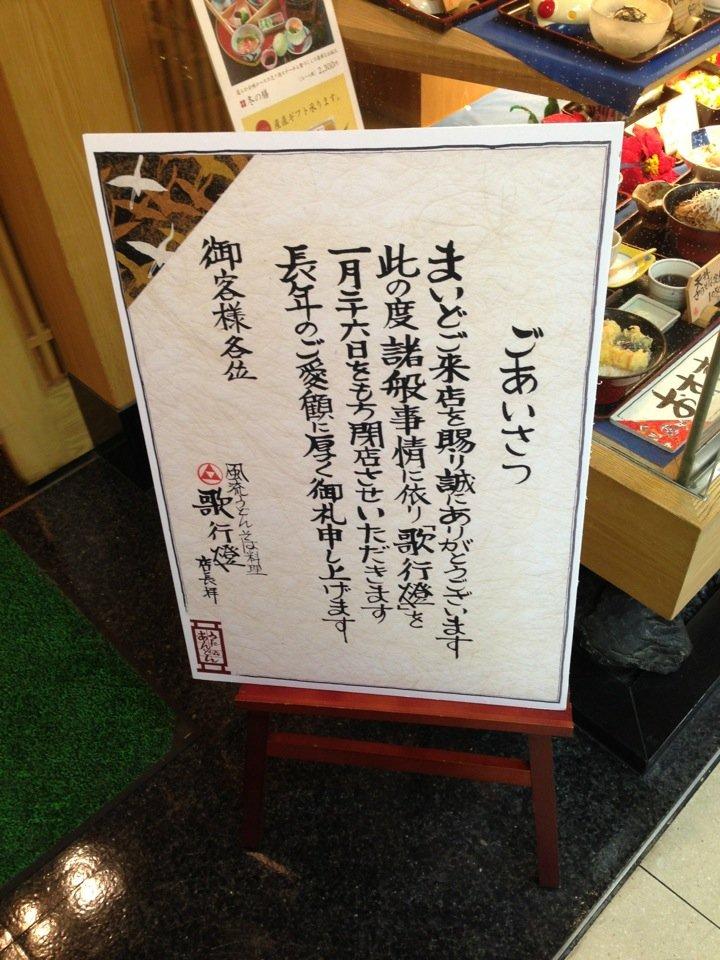 ごあいさつ
まいどご来店を賜り誠にありがとうございます
此の度諸般事情に依り「歌行燈」を
一月二十六日をもち閉店させいただきます
長年のご愛顧に厚く御礼申し上げます
御客様各位
風流うどんそば料理
歌行燈
店長拝
冬の膳
2,300円
産直ギフト承ります。